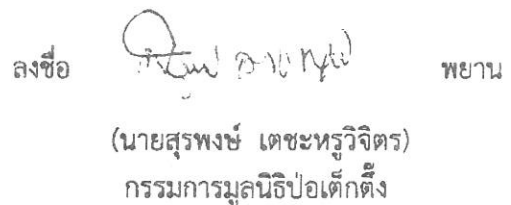 ลงชื่อ พยาน
(นายสุรพงษ์ เตชะหรูวิจิตร)
กรรมการมูลนิธิป่อเต็กตึ๊ง